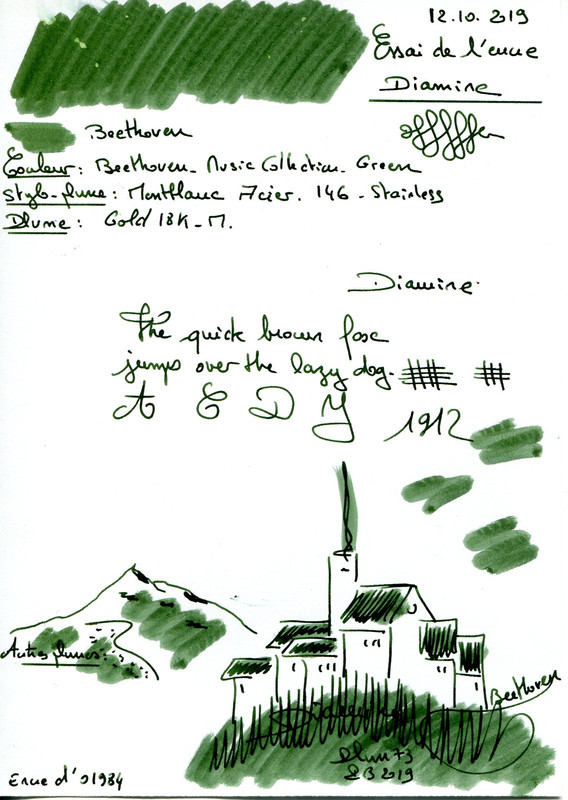 12.10.2019
Essai de l'encre
Diamine
Beethoven
Couleur: Beethoven_Music Collection_Green
Stylo-plume: Montblanc Acier. 146 - Stainless
Plume: Gold 18K_M.
Diamine
The quick brown fox
jumps over the lazy dog.
A E D Y 1912
Autres plumes:
Beethoven
Diamine
Plum73
SB 2019
Encre d'01984